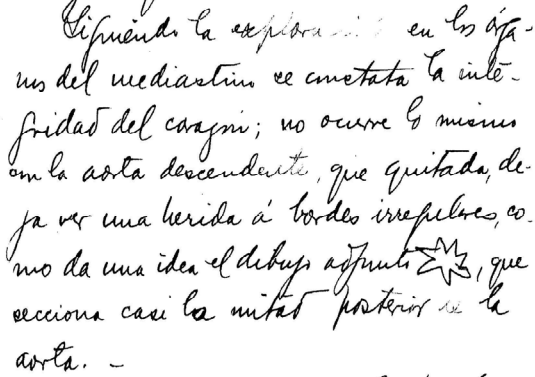 Siguiendo la exploración en los órga-
nos del mediastino se constata la inte-
gridad del corazón; no ocurre lo mismo
con la aorta descendente, que quitada, de-
ja ver una herida á bordes irregulares, co-
mo da una idea el dibujo adjunto, que
secciona casi la mitad posterior de la
aorta. –